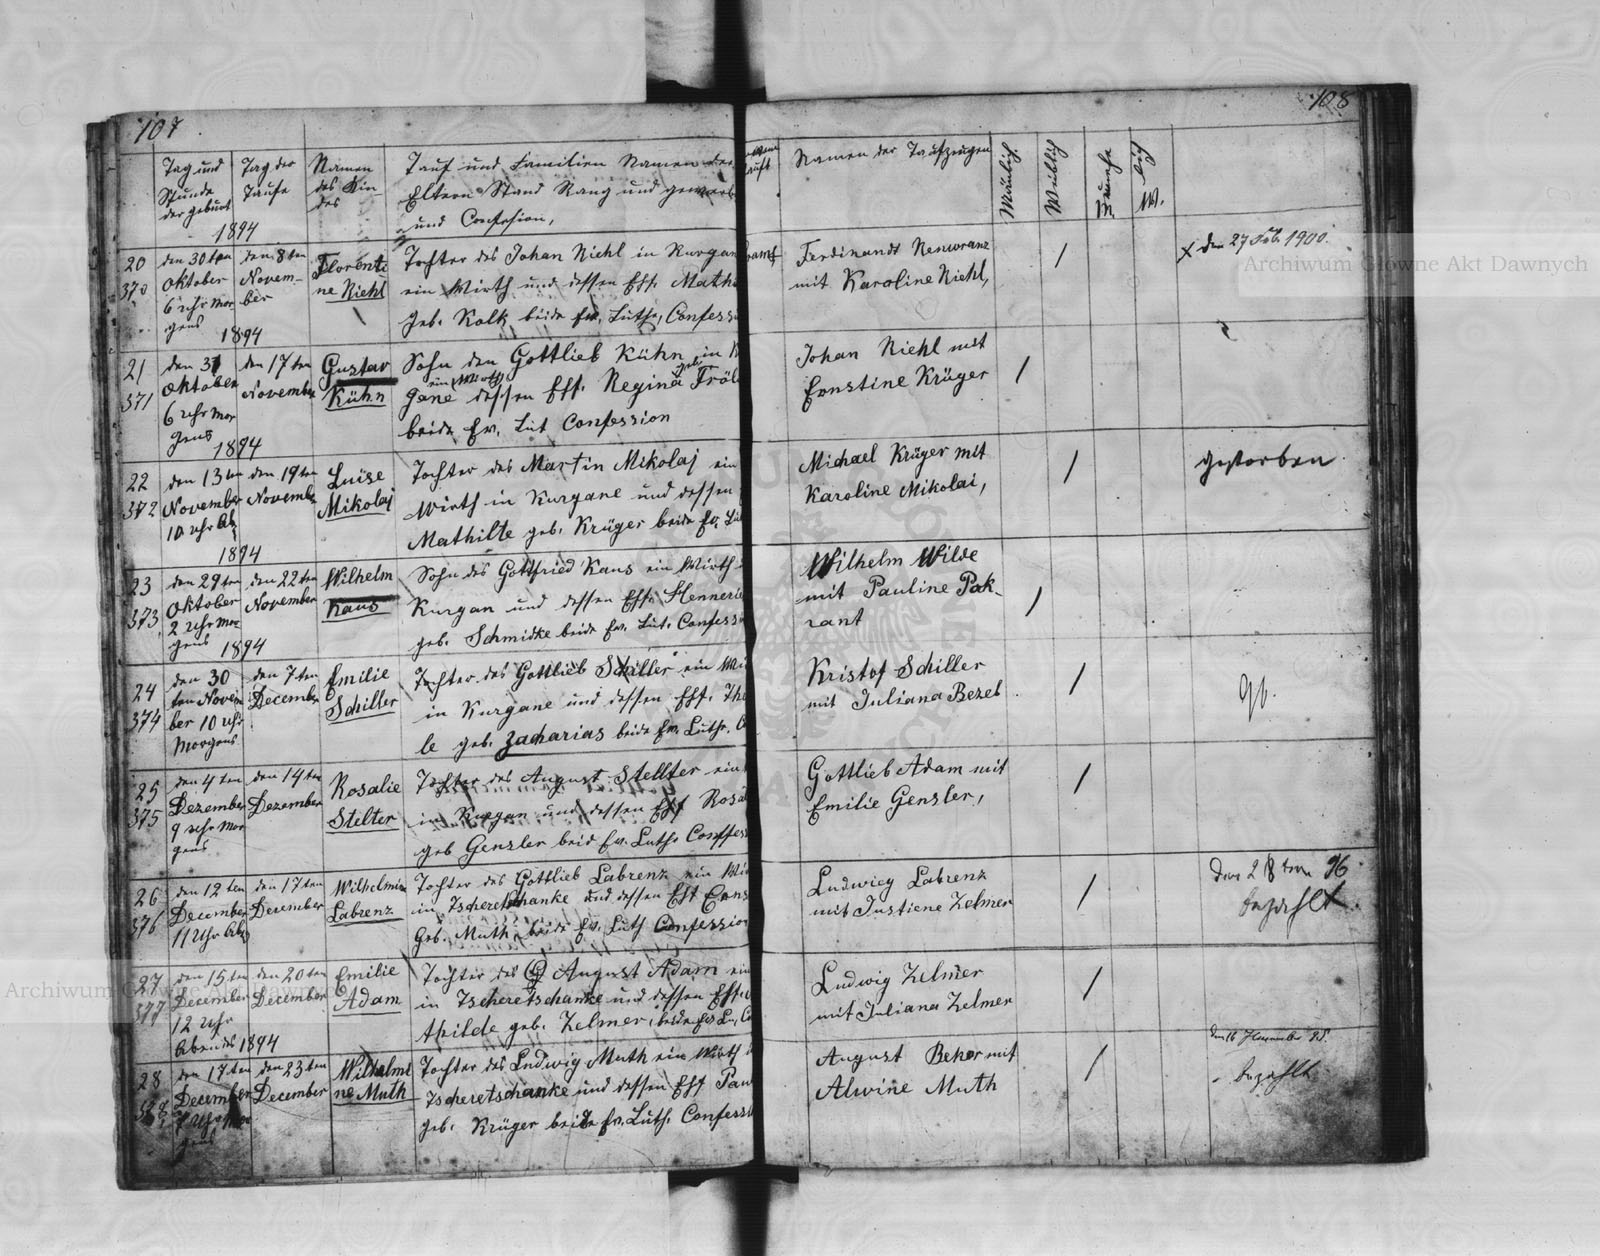 107
Tag und
Stunde
der geburt
Tag der
Taufe
Namen
des Kin-
des
Tauf und Familien Namen der
Eltern Stand Rang und gewerb
und Confesion,
1894
20
370
den 30ten
Oktober
6 uhr Mor
gens
den 8ten
Novem-
ber
Florenti
ne Riehl
Tochter des Johan Riehl in Kurgan
ein Wirth und dessen Ehf. Math
geb. Kolk beide Ev. Luth, Confess
1894
21
371
den 31
Oktober
6 uhr Mor
gens
den 17ten
November
Gustav
Kühn
Sohn den Gottlieb Kühn in K
ein Wirth geb.
gane dessen Ehf. Regina Fröl
beide Ev. Lut Confession
1894
22
372
den 13ten
November
10 uhr Ab
den 19ten
Novemb
Luise
Mikolaj
Tochter des Martin Mikolaj ein
Wirth in Kurgane und dessen
Mathilte geb. Krüger beide Ev. Lu
1894
23
373
den 29ten
Oktober
2 uhr Mor
gens
den 22ten
November
Wilhelm
Kaus
Sohn des Gottfried Kaus ein Wirth
Kurgan und dessen Ehf. Hennerie
geb. Schmidke beide Ev. Lut. Confess
1894
24
374
den 30
ten Novem
ber 10 uhr
Morgens
den 7ten
December
Emilie
Schiller
Tochter des Gottlieb Schiller ein Wi
in Kurgane und dessen Ehf. The
le geb. Zacharias beide Ev. Luthr. C
25
375
den 4ten
Dezember
9 uhr Mor
gens
den 14ten
Dezember
Rosalie
Stelter
Tochter des August Stellter ein
in Kurgan und dessen Ehf Rosa
geb Genzler beid Ev. Luth. Confess
26
376
den 12ten
December
11 Uhr Ab
den 17ten
December
Wilhelmin
Labrenz
Tochter des Gottlieb Labrenz ein Wi
in Tscheretschanke und dessen Ehf Erns
Geb. Muth beide Ev. Luth Confession
27
377
den 15ten
December
12 Uhr
Abends
den 20ten
December
Emilie
Adam
Tochter des August Adam ein
in Tscheretschanke und dessen Ehf.
thilde geb. Zelmer, beide Ev Lu, C
1894
28
den 17ten
December
7 Uhr Mor
gens
den 23ten
December
Wilhelmi
ne Muth
Tochter des Ludwig Muth ein Wirth
Tscheretschanke und dessen Ehf Pau
geb. Krüger beide Ev. Luth. Confess
108
Namen der Taufzeugen
Mänlich
Weiblich
W.
Ferdinandt Nemoranz
mit Karoline Riehl,
/
x den 27 Feb. 1900.
Johan Riehl mit
Ernstine Krüger
/
Michael Krüger mit
Karoline Mikolai,
/
gestorben
Wilhelm Wilde
mit Pauline Pok-
rant
/
Kristof Schiller
mit Juliana Bezel
/
Gottlieb Adam mit
Emilie Genzler,
/
Ludwieg Labrenz
mit Justiene Zelmer
/
96
bezahlt
Ludwig Zelmer
mit Juliana Zelmer
/
August Beker mit
Alwine Muth
/
bezahlt
Archiwum Główne Akt Dawnych
Archiwum Główne Akt Dawnych